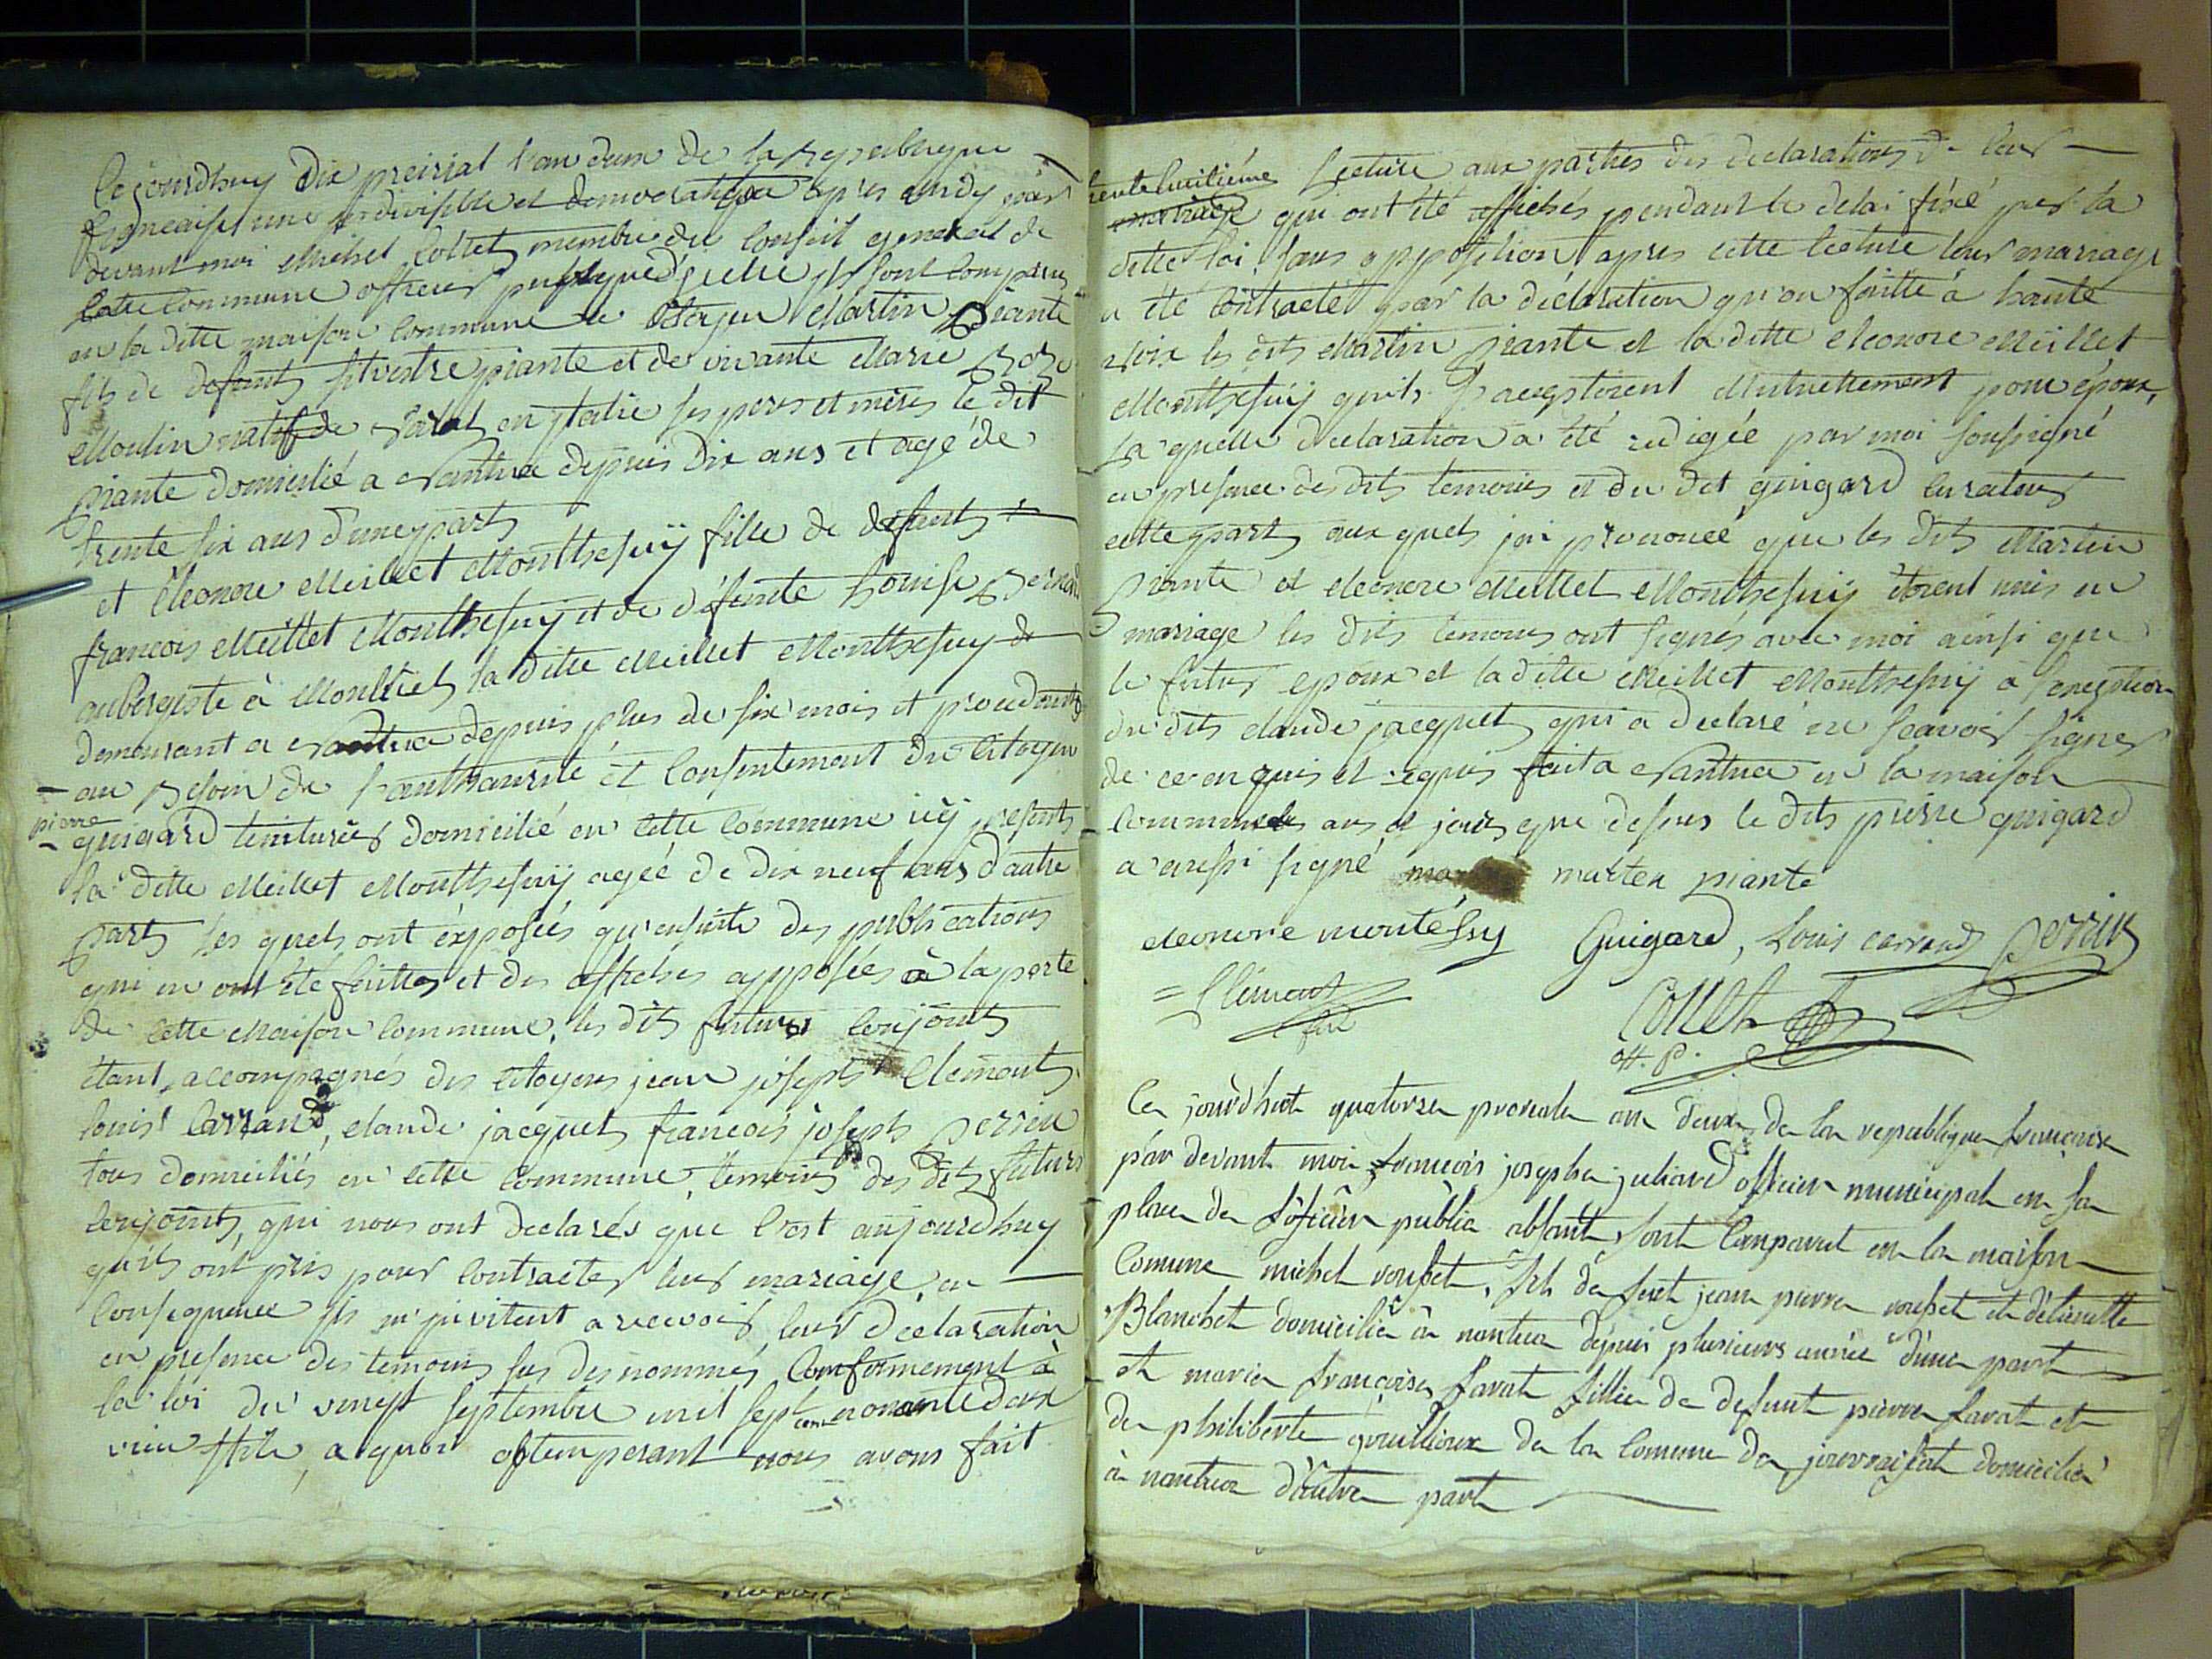 Cejourdhuy dix preirial l'an deux de la republique
francaise une indivisible et democratique apres midy par
devant moi Michel Collet membre du Conseil general de
cette Commune officier publique d'ycelle ils sont comparus
en la ditte maison Commune le Citoyen Martin piante
fils de defunts silvestre piante et de vivante Marie Rose
Moulin natif de en ytalie ses peres et meres le dit
piante domicilié a Nantua depuis dix ans et agé de
trente six ans d'une part
et Eleonore Meillet Monthesuÿ fille de defunts
francois Meillet Monthesuÿ et de défunte Louise Bernard
aubergiste à Montluel la ditte Meillet Monthesuy de
demeurant a Nantua depuis plus de six mois et procedante
au Besoin de l'authaurité et Consentement du Citoyen
pierre
guigard teinturier domicilié en cette Commune icÿ present
la ditte Meillet Monthesuÿ agée de dix neuf ans d'autre
part les quels ont éxposées qu'ensuite des publications
qui en ont été faittes et des affiches apposées à la porte
de cette Maison Commune, les dits futurs conjoints
étant accompagnés des citoyens jean joseph Clement
louis Carrand, claude jacquet francois joseph perrin
tous domiciliés en cette Commune, temoins des dits futurs
conjoints, qui nous ont declarés que C'est aujourdhuy
qu'ils ont pris pour Contracter leur mariage, en
Consequence ils m'invitent a recevoir leur declaration
en presence des temoins sus denommés Conformement à
la loi du vingt septembre mil sept cent nonante deux
vieu stile, a quoi obtemperant nous avons fait
trente huitiéme
mariage
Lecture aux parties des declarations de leur
qui ont été affichés pendant le delai fixé par la
ditte loi, sans opposition, apres cette lecture leur mariage
a été Contracté par la déclaration qu'on faitte á haute
voix les dits Martin piante et la ditte eleonore Meillet
Monthesuÿ qu'ils s'acceptoient Mutuellement pour époux,
la quelle declaration a été redigée par moi soussigné
en presence des dits temoins et du dit guigard curateur
cette part aux quels jai prononcé que les dits Martin
piante et eleonore Meillet Monthesuÿ étoient unis en
mariage les dits temoins ont signés avec moi ainsi que
le futur epoux et la ditte Meillet Monthesuÿ à l'exception
du dits claude jacquet qui a declaré ne scavoir signer
de ce enquis et requis fait a Nantua en la maison
Commune les ans et jours que dessus le dits pierre guigard
a aussi signé marten piante
eleonore montéssy Guigard, Louis carrand perrin
Clement
Collet
off. p.
Ce jourd'huit quatorze preriale an deux de la republique francaise
par devant moi francois josephe juliard officier municipal en la
place de l'oficier public absant sont Comparut en la maison
Comune michel roubet, fils de feut jean pierre roubet et d'étienette
Blanchet domicilié à nantua depuis plusieurs année d'une part
et marie françoise favat fillie de defunt pierre favat et
de philiberte de la Comune de domicilié
à nantua d'autre part